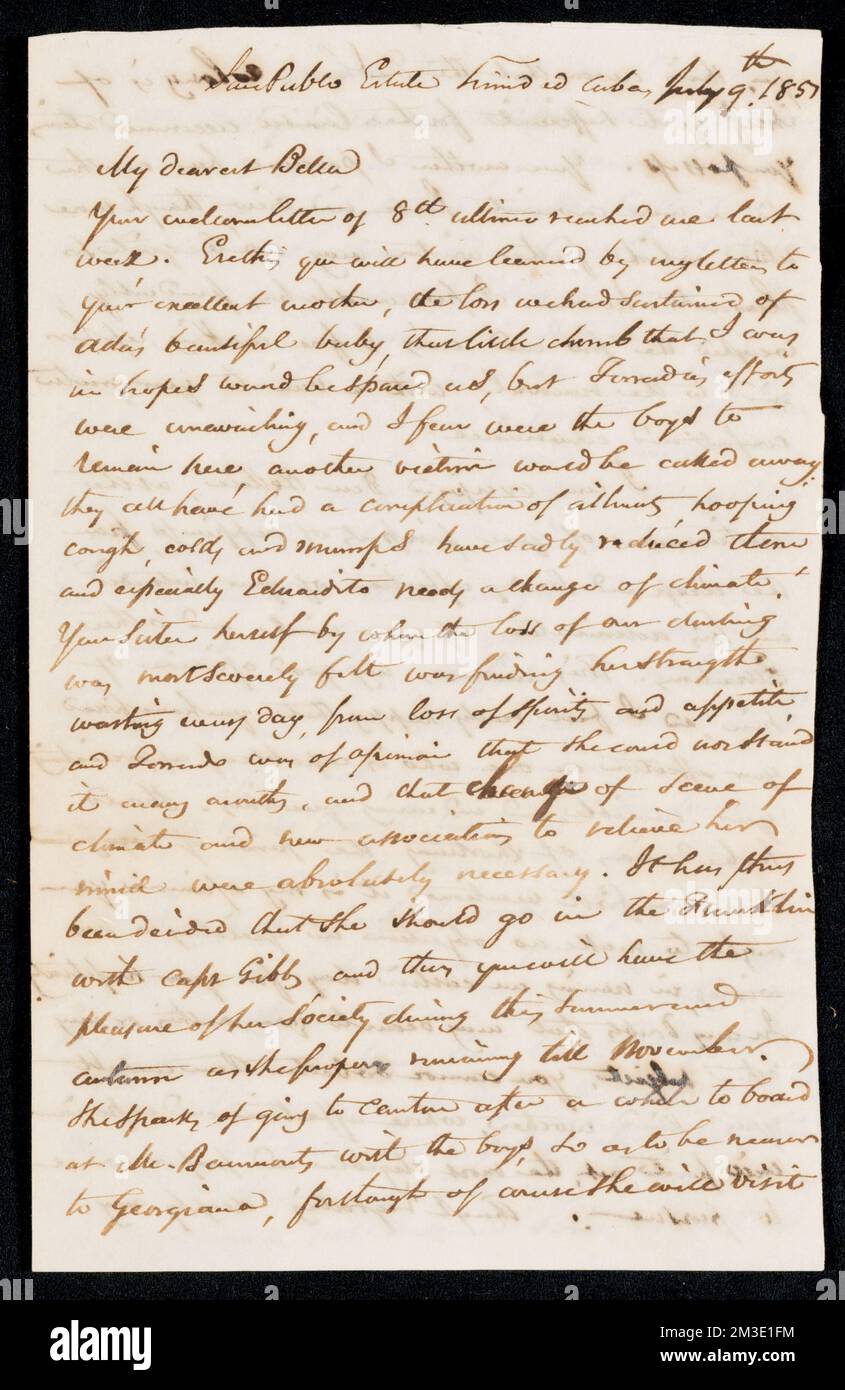 San Pablo Estate Trinidad Cuba, July 9th. 1857
My dearest Bella
Your welcome letter of 8th ultimo reached me last
week. Ere this you will have learned by my letters to
your excellent mother, the loss we had sustained of
Ada's beautiful baby, that little cherub that I was
in hopes would be spared us, but Torrado's efforts
were unavailing, and I fear were the boys to
remain here another victim would be called away
they all have had a complication of ailments, hooping
cough, colds, and mumps have sadly reduced them
and especially Eduardito needs a change of climate.
Your Sister herself by whom the loss of our darling
was most severely felt was finding her strength
wasting every day, from loss of spirits and appetite,
and Torrado was of opinion that she could not stand
it many months, and that change of scene of
climate and new associations to relieve her
mind were absolutely necessary. It has thus
been decided that she should go in the Franklin
with Capt Gibbs and thus you will have the
pleasure of her Society during this summer and
autumn as she proposes remaining till November.
She speaks of going to Canton after a while to board
at Mr. Beaumonts with the boys, so as to be nearer
to Georgiana, for though of course she will visit
alamy
alamy
Image ID: 2M3E1FM
www.alamy.com